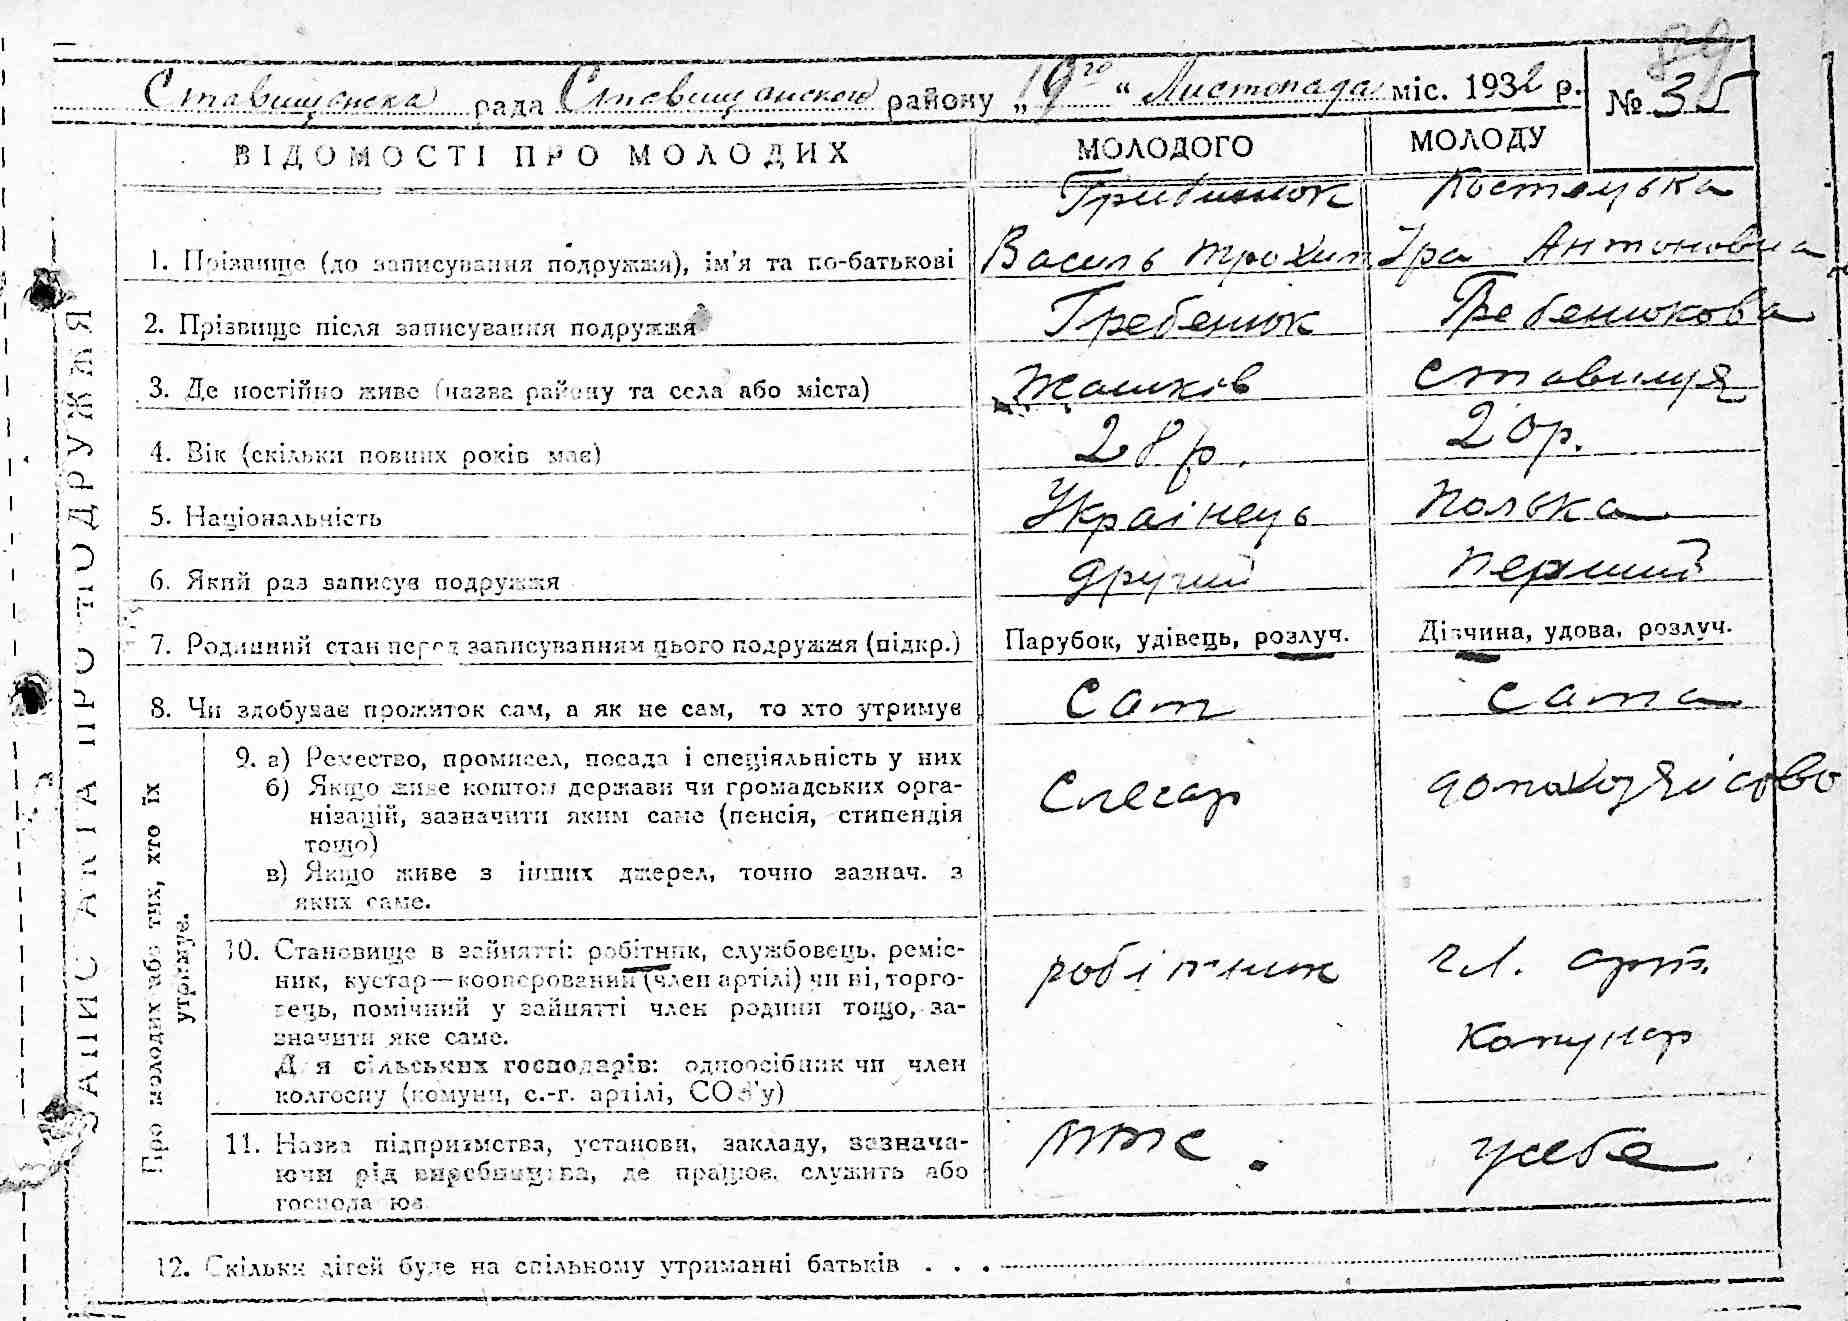 89
Ставищанска рада Ставищанского району „19го“ Листопада міс. 1932 р. № 35
ВІДОМОСТІ ПРО МОЛОДИХ МОЛОДОГО МОЛОДУ
Грибинюк Костецька
1. Прізвище (до записування подружжя), ім'я та по-батькові Василь Трохим Іра Антоновна
2. Прізвище після записування подружжя Гребенюк Гребенюкова
3. Де постійно живе (назва району та села або міста) Жашків Ставища
4. Вік (скільки повних років має) 28 р. 20 р.
5. Національність Українець Полька
6. Який раз записує подружжя другий перший
7. Родинний стан перед записуванням цього подружжя (підкр.) Парубок, удівець, розлуч. Дівчина, удова, розлуч.
8. Чи здобуває прожиток сам, а як не сам, то хто утримує Сам сама
9. а) Ремество, промисел, посада і спеціяльність у них
б) Якщо живе коштом держави чи громадських орга-
нізацій, зазначити яким саме (пенсія, стипендія
тощо)
в) Якщо живе з інших джерел, точно зазнач. з
яких саме.
Слесар домахозяйсово
10. Становище в зайнятті: робітник, службовець, реміс-
ник, кустар—кооперований (член артілі) чи ні, торго-
вець, помічний у зайнятті член родини тощо, за-
значити яке саме.
Для сільських господарів: одноосібник чи член
колгоспу (комуни, с.-г. артілі, СОЗ'у)
робітник чл. арт.
Комунар
11. Назва підприємства, установи, закладу, зазнача-
ючи рід виробництва, де працює, служить або
господарює
МТС. усебе
12. Скільки дітей буде на спільному утриманні батьків . . .
Про молодих або тих, хто їх
утримує.
ЗАПИС АКТА ПРО ПОДРУЖЖЯ